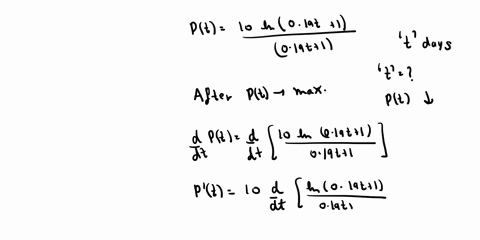 P(t) = 10 ln(0.19t+1) / (0.19t+1)
't' days
't' = ?
After P(t) → max.
P(t) ↓
d/dt P(t) = d/dt [10 ln (0.19t+1) / 0.19t+1]
P'(t) = 10 d/dt [ln(0.19t+1) / 0.19t1